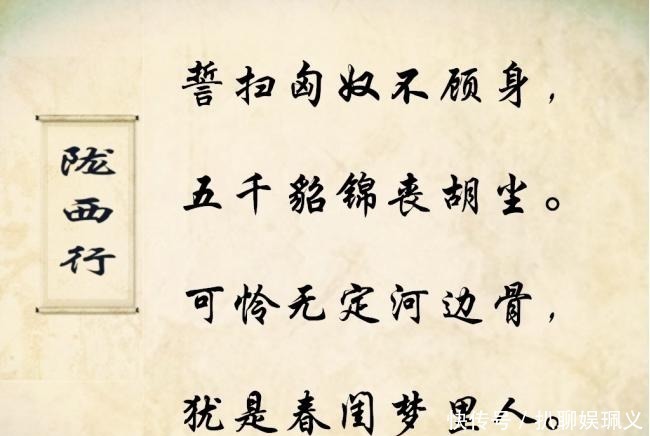 陇西行
誓扫匈奴不顾身，
五千貂锦丧胡尘。
可怜无定河边骨，
犹是春闺梦里人。
快传号 / 扒聊娱珮义